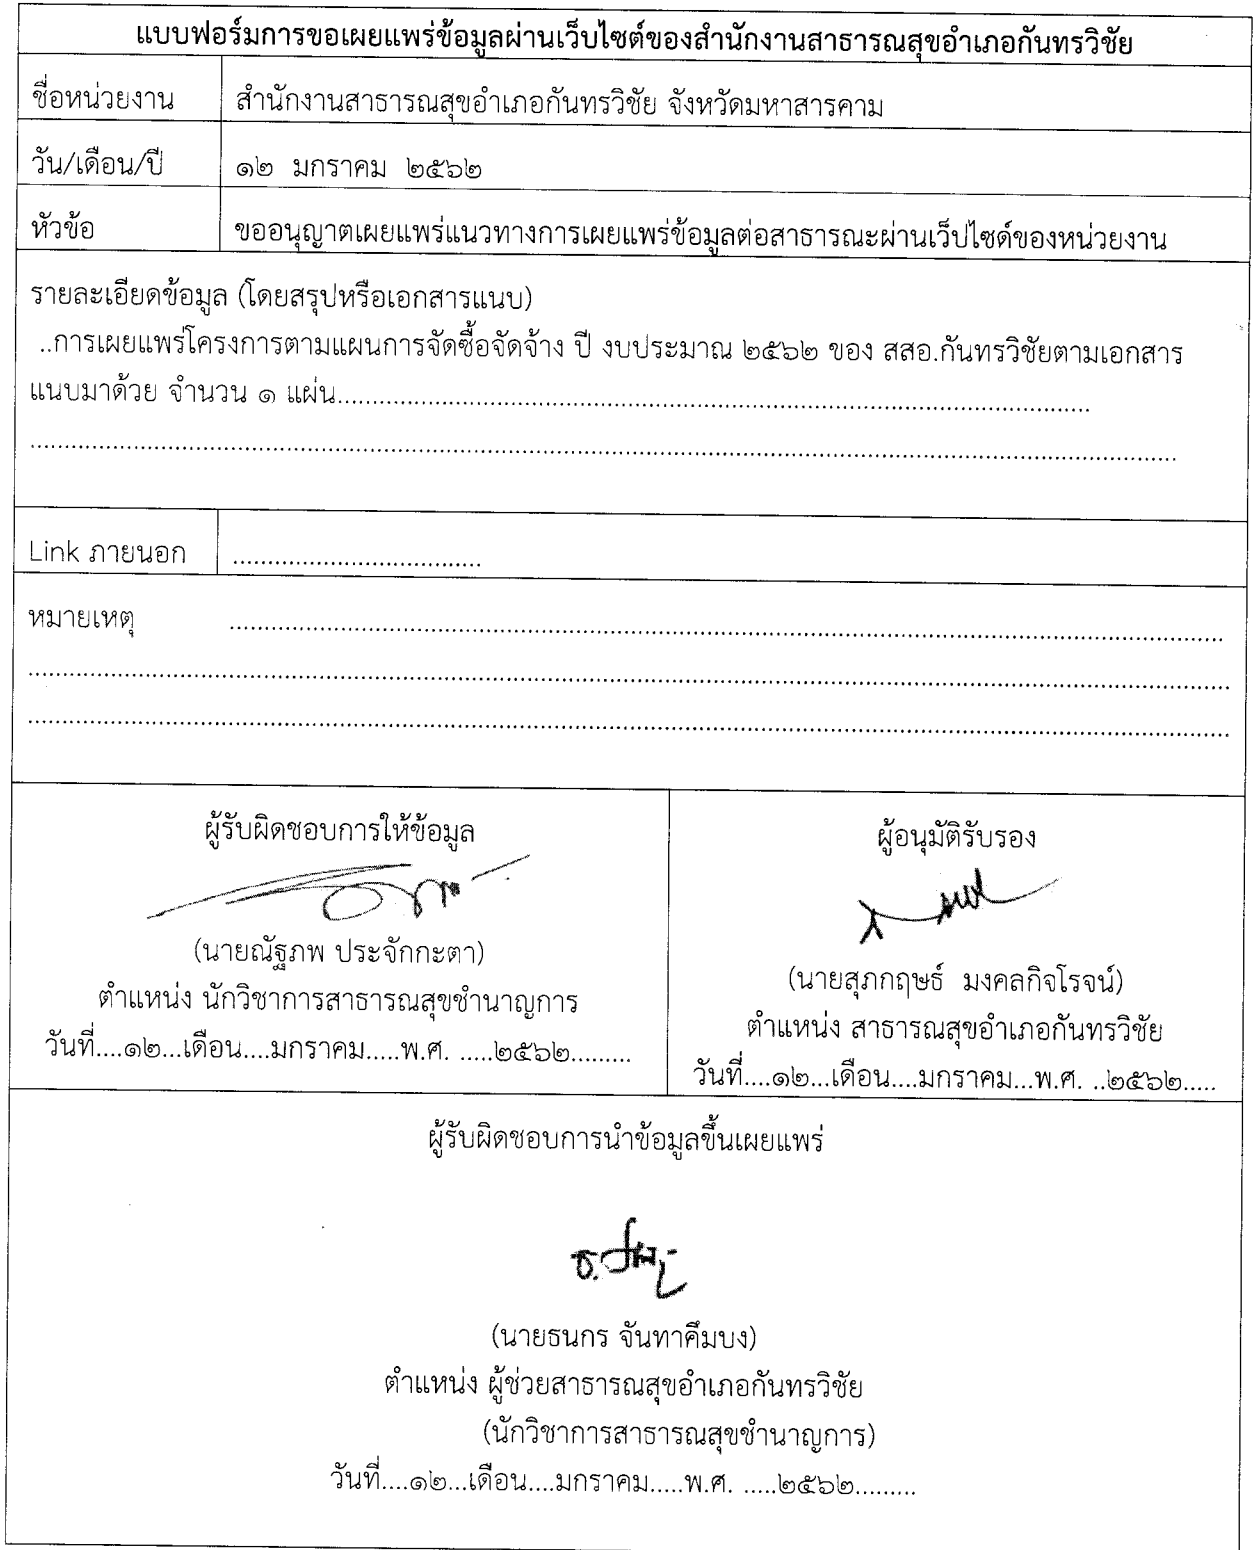 แบบฟอร์มการขอเผยแพร่ข้อมูลผ่านเว็บไซต์ของสำนักงานสาธารณสุขอำเภอกันทรวิชัย
ชื่อหน่วยงาน สำนักงานสาธารณสุขอำเภอกันทรวิชัย จังหวัดมหาสารคาม
วัน/เดือน/ปี ๑๒ มกราคม ๒๕๖๒
หัวข้อ ขออนุญาตเผยแพร่แนวทางการเผยแพร่ข้อมูลต่อสาธารณะผ่านเว็ปไซด์ของหน่วยงาน
รายละเอียดข้อมูล (โดยสรุปหรือเอกสารแนบ)
..การเผยแพร่โครงการตามแผนการจัดซื้อจัดจ้าง ปี งบประมาณ ๒๕๖๒ ของ สสอ.กันทรวิชัยตามเอกสาร
แนบมาด้วย จำนวน ๑ แผ่น.............................................................................................................
......................................................................................................................................................................
Link ภายนอก ....................................
หมายเหตุ ................................................................................................................................................
..............................................................................................................................................................................
..............................................................................................................................................................................
ผู้รับผิดชอบการให้ข้อมูล
(นายณัฐภพ ประจักกะตา)
ตำแหน่ง นักวิชาการสาธารณสุขชำนาญการ
วันที่....๑๒...เดือน....มกราคม.....พ.ศ. .....๒๕๖๒.........
ผู้อนุมัติรับรอง
(นายสุภกฤษธ์ มงคลกิจโรจน์)
ตำแหน่ง สาธารณสุขอำเภอกันทรวิชัย
วันที่....๑๒...เดือน....มกราคม...พ.ศ. ..๒๕๖๒.....
ผู้รับผิดชอบการนำข้อมูลขึ้นเผยแพร่
(นายธนกร จันทาคึมบง)
ตำแหน่ง ผู้ช่วยสาธารณสุขอำเภอกันทรวิชัย
(นักวิชาการสาธารณสุขชำนาญการ)
วันที่....๑๒...เดือน....มกราคม.....พ.ศ. .....๒๕๖๒.........